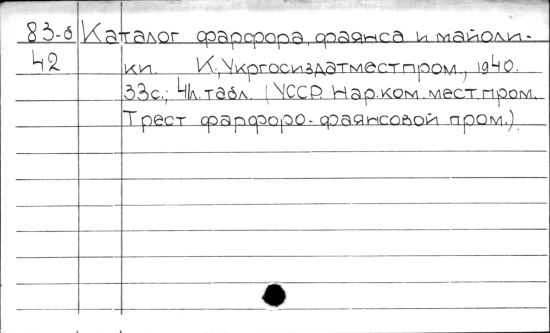 83-б Каталог фарфора, фаянса и майоли-
42 ки. К., Укргосиздатместпром., 1940.
33с.; 41л. табл. (УССР. Нар.ком. мест.пром.
Трест фарфоро-фаянсовой пром.).